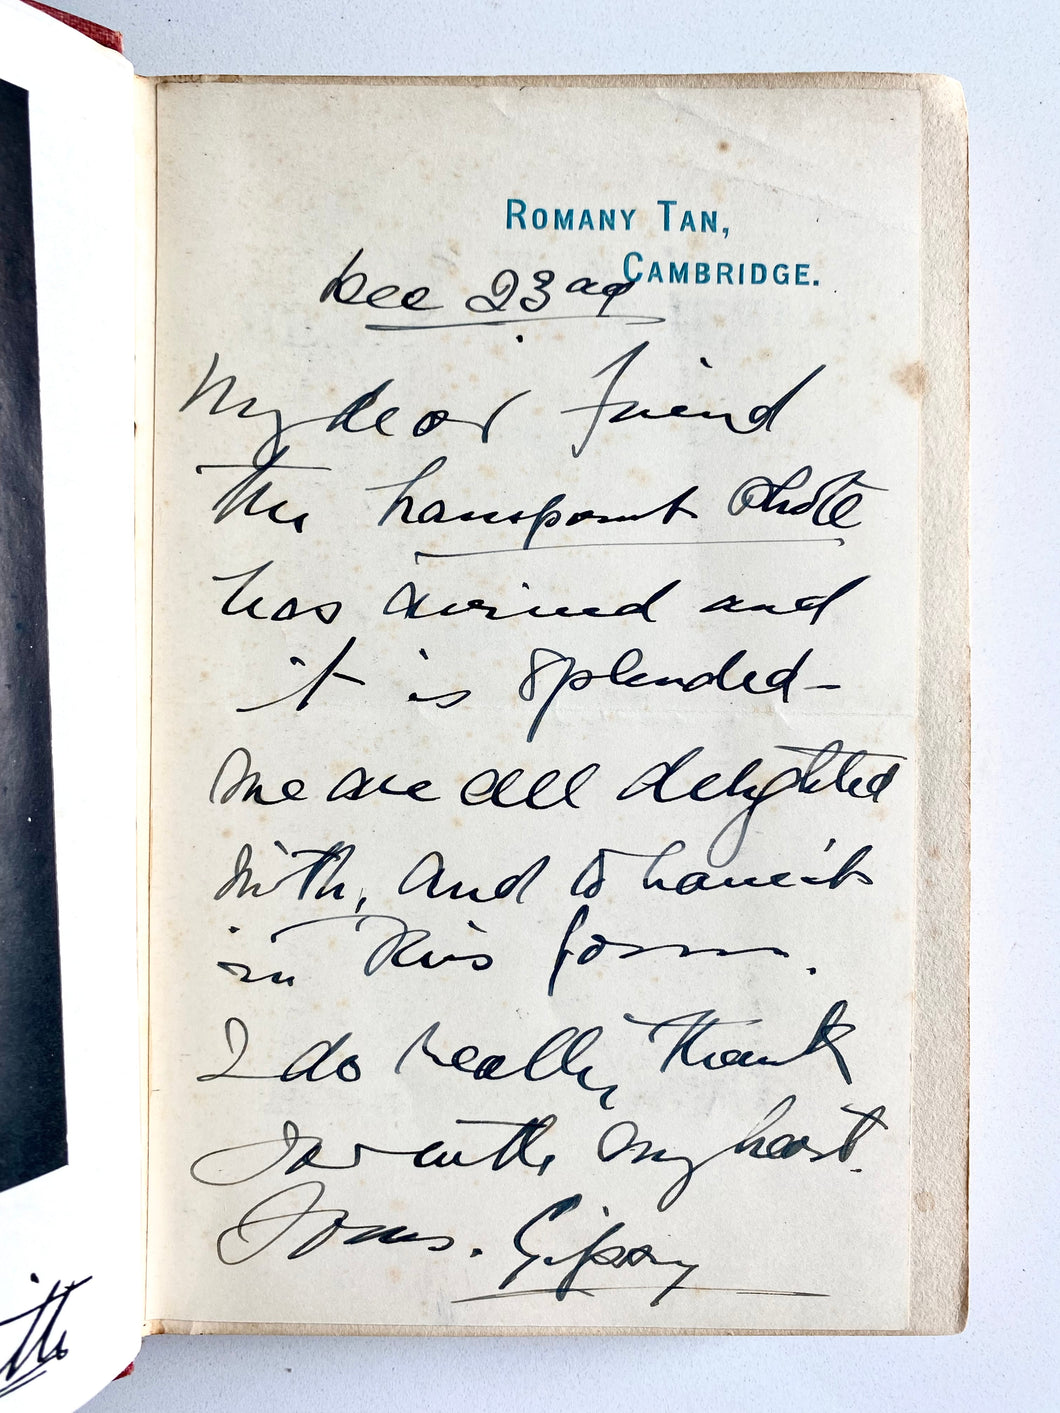 ROMANY TAN,
CAMBRIDGE.
Dec 23rd
My dear Friend
the transparent Photo
has arrived and
it is splended-
we are all delighted
with, and to have it
in this form.
I do really thank
you with my heart.
Yours. Gipsy